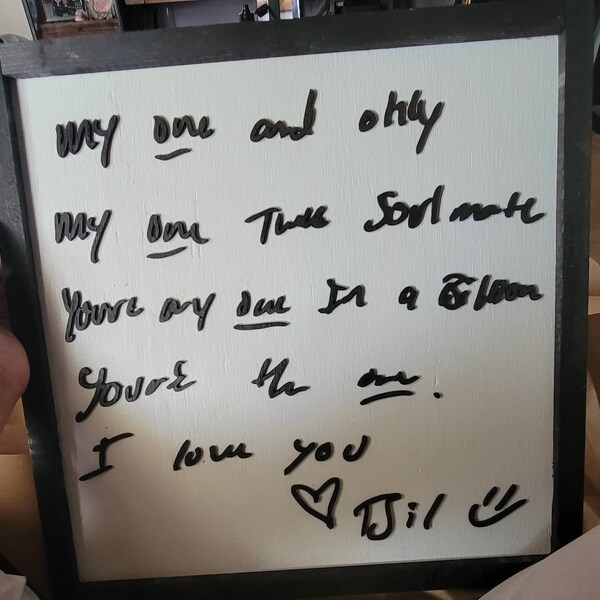 My one and only
My one True Soulmate
You're my one In a Billion
You're the one.
I love you
♡ TJil